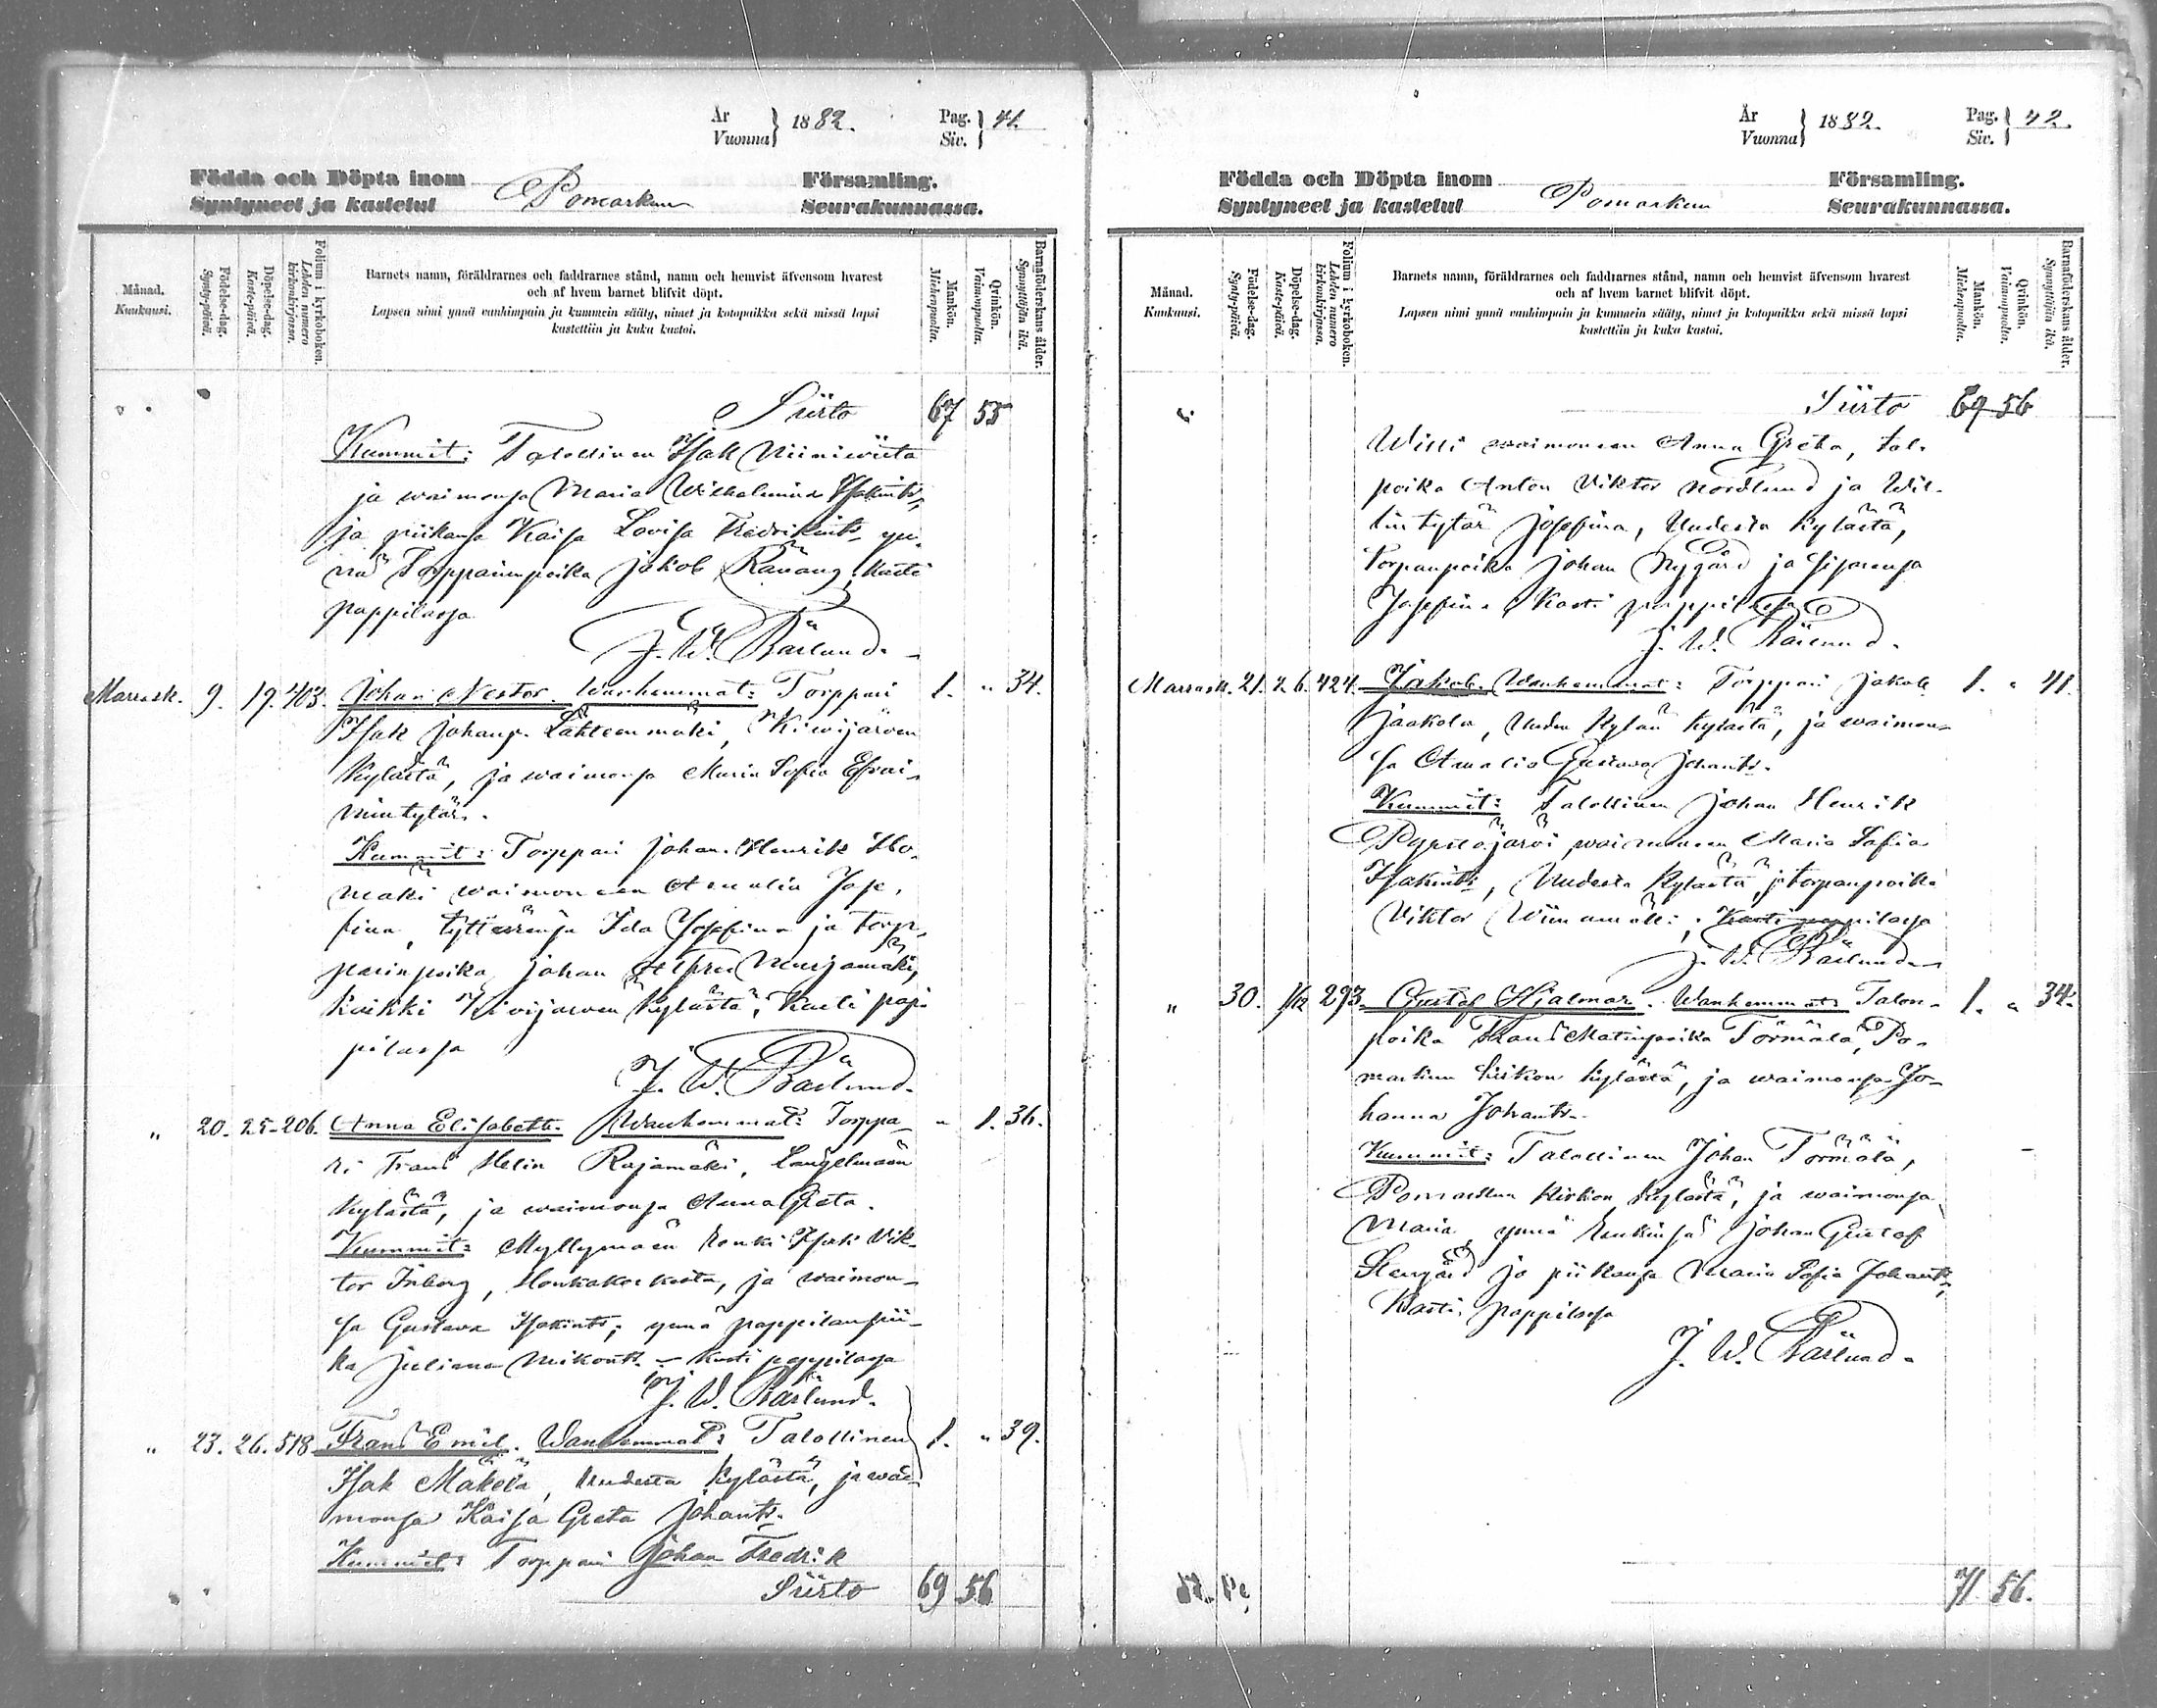 År
Vuonna } 1882. Pag.
Siv. } 41.
Födda och Döpta inom Församling.
Syntyneet ja kastetut Pomarkun Seurakunnassa.
Månad.
Kuukausi.
Födelse-dag.
Synty-päivä.
Döpelse-dag.
Kaste-päivä.
Folium i kyrkoboken.
Lehden numero kirkonkirjassa.
Barnets namn, föräldrarnes och faddrarnes stånd, namn och hemvist äfvensom hvarest
och af hvem barnet blifvit döpt.
Lapsen nimi ynnä vanhimpain ja kummein sääty, nimet ja kotopaikka sekä missä lapsi
kastettiin ja kuka kastoi.
Mankön.
Miehenpuolta.
Qvinkön.
Vaimonpuolta.
Barnaföderskans ålder.
Synnyttäjän ikä.
Siirto 67 55
Kummit: Talollinen Isak Niiniwiita
ja waimonsa Maria Wilhelmina Isakint.
ja piikansa Kaisa Lovisa Fredrikint. yn-
nä Torpparinpoika Jakob Kasti
pappilassa
J. W. Bärlund.
Marrask. 9. 19. 403. Johan Nestor. Wanhemmat: Torppari 1. " 34.
Isak Johanp. Lähteenmäki, Kiwijärwen
kylästä, ja waimonsa Maria Sofia Efrai-
mintytär.
Kummit: Torppari Johan Henrik
mäki waimoneen Amalia Jose-
fina, tyttärensä Ida Josefina ja torp-
parinpoika Johan
kaikki Kiwijärwen kylästä; Kasti pap-
pilassa
J. W. Bärlund.
" 20. 25. 206. Anna Elisabeth. Wanhemmat: Torppa- " 1. 36.
ri Frans Helin Rajamäki, Längelmään
kylästä, ja waimonsa Anna Greta.
Kummit: Myllymäen renki Isak Vik-
tor Inberg, Honkakoskesta, ja waimon-
sa Gustava Isakint.; ynnä pappilan pii-
ka Juliana Mikont. – Kasti pappilassa
J. W. Bärlund.
" 23. 26. 518. Frans Emil. Wanhemmat: Talollinen 1. " 39.
Isak Mäkelä, Uudesta kylästä, ja wai-
monsa Kaisa Greta Johant.
Kummit: Torppari Johan Fredrik
Siirto 69 56
År
Vuonna } 1882. Pag.
Siv. } 42.
Födda och Döpta inom Församling.
Syntyneet ja kastetut Pomarkun Seurakunnassa.
Månad.
Kuukausi.
Födelse-dag.
Synty-päivä.
Döpelse-dag.
Kaste-päivä.
Folium i kyrkoboken.
Lehden numero kirkonkirjassa.
Barnets namn, föräldrarnes och faddrarnes stånd, namn och hemvist äfvensom hvarest
och af hvem barnet blifvit döpt.
Lapsen nimi ynnä vanhimpain ja kummein sääty, nimet ja kotopaikka sekä missä lapsi
kastettiin ja kuka kastoi.
Mankön.
Miehenpuolta.
Qvinkön.
Vaimonpuolta.
Barnaföderskans ålder.
Synnyttäjän ikä.
Siirto 69 56
Willi waimoneen Anna Greta, tal.
poika Anton Viktor Nordlund ja
Josefina, Uudesta kylästä,
Torpanpoika Johan Nygård ja sisarensa
Josefina; Kasti pappilassa
J. W. Bärlund.
Marrask. 21. 26. 424. Jakob. Wanhemmat: Torppari Jakob 1. " 41.
Jaakola, Uuden kylän kylästä, ja waimon-
sa Amalia Gustava Johant.
Kummit: Talollinen Johan Henrik
waimoneen Maria Sofia
Isakint., Uudesta kylästä ja torpanpoika
Viktor; Kasti pappilassa
J. W. Bärlund.
" 30. 1/12 293. Gustaf Hjalmar. Wanhemmat: Talon- 1. " 34.
poika Frans Matinpoika Törmälä, Po-
markun kirkon kylästä, ja waimonsa Jo-
hanna Johant.
Kummit: Talollinen Johan Törmälä,
Pomarkun kirkon kylästä, ja waimonsa
Maria, ynnä renkinsä Johan Gustaf
Stengård ja piikansa Maria Sofia Johant.;
Kasti pappilassa
J. W. Bärlund.
71. 56.